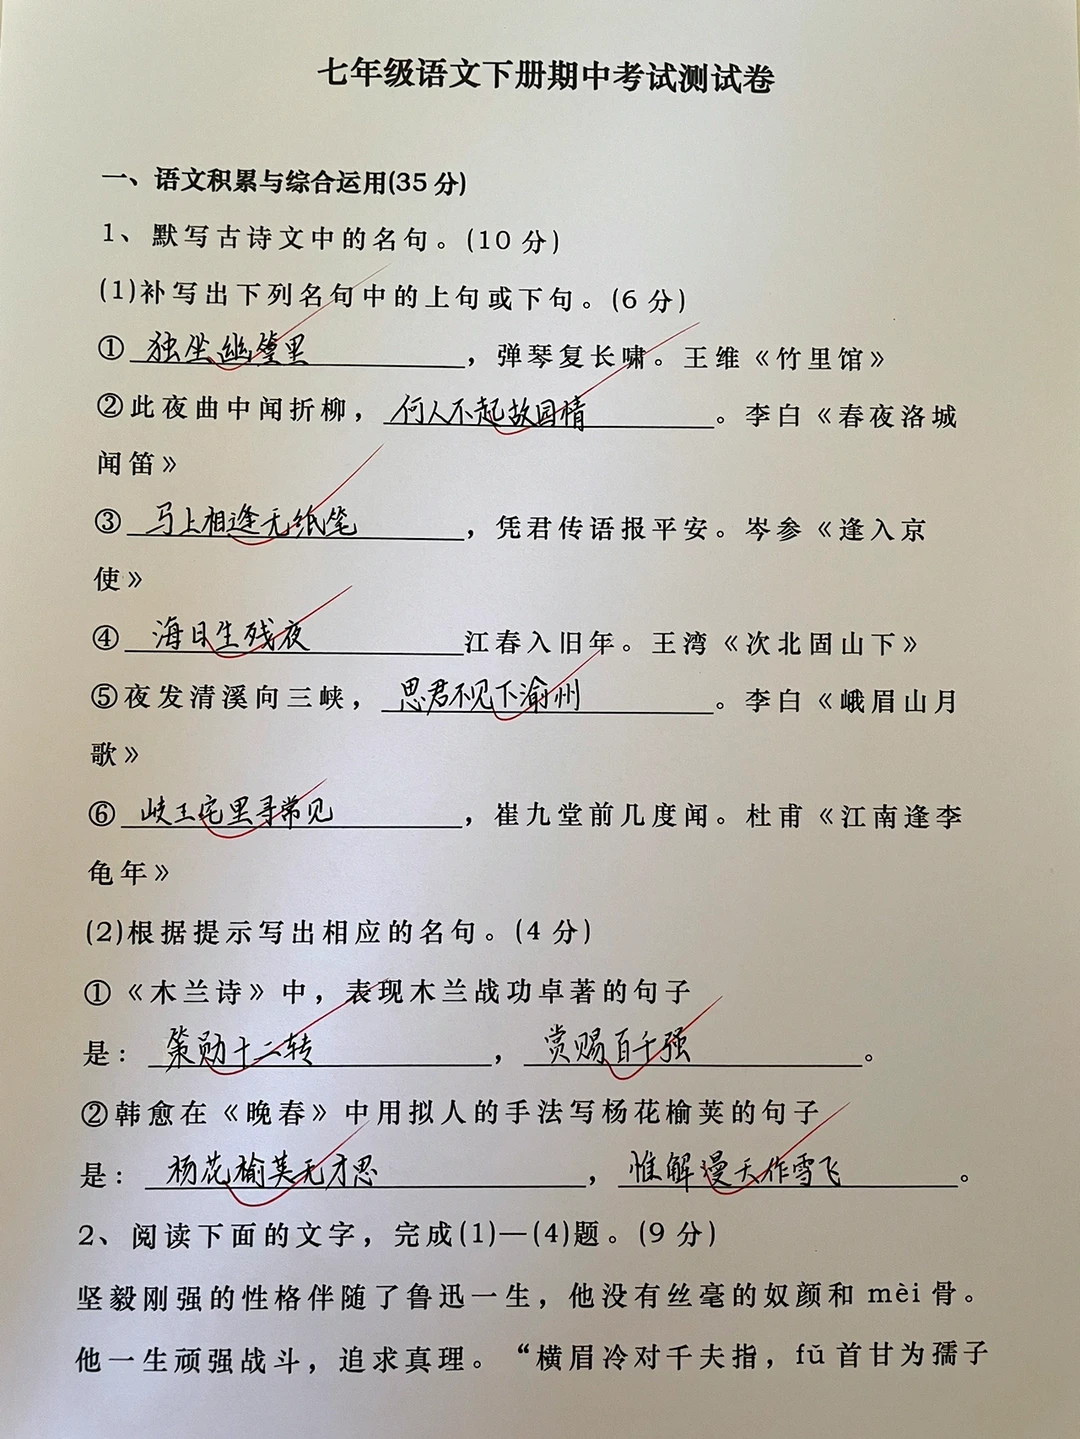 七年级语文下册期中考试测试卷
一、语文积累与综合运用(35分)
1、默写古诗文中的名句。(10分)
(1)补写出下列名句中的上句或下句。(6分)
①独坐幽篁里，弹琴复长啸。王维《竹里馆》
②此夜曲中闻折柳，何人不起故园情。李白《春夜洛城
闻笛》
③马上相逢无纸笔，凭君传语报平安。岑参《逢入京
使》
④海日生残夜江春入旧年。王湾《次北固山下》
⑤夜发清溪向三峡，思君不见下渝州。李白《峨眉山月
歌》
⑥岐王宅里寻常见，崔九堂前几度闻。杜甫《江南逢李
龟年》
(2)根据提示写出相应的名句。(4分)
①《木兰诗》中，表现木兰战功卓著的句子
是：策勋十二转，赏赐百千强。
②韩愈在《晚春》中用拟人的手法写杨花榆荚的句子
是：杨花榆荚无才思，惟解漫天作雪飞。
2、阅读下面的文字，完成(1)—(4)题。(9分)
坚毅刚强的性格伴随了鲁迅一生，他没有丝毫的奴颜和mèi骨。
他一生顽强战斗，追求真理。“横眉冷对千夫指，fǔ首甘为孺子